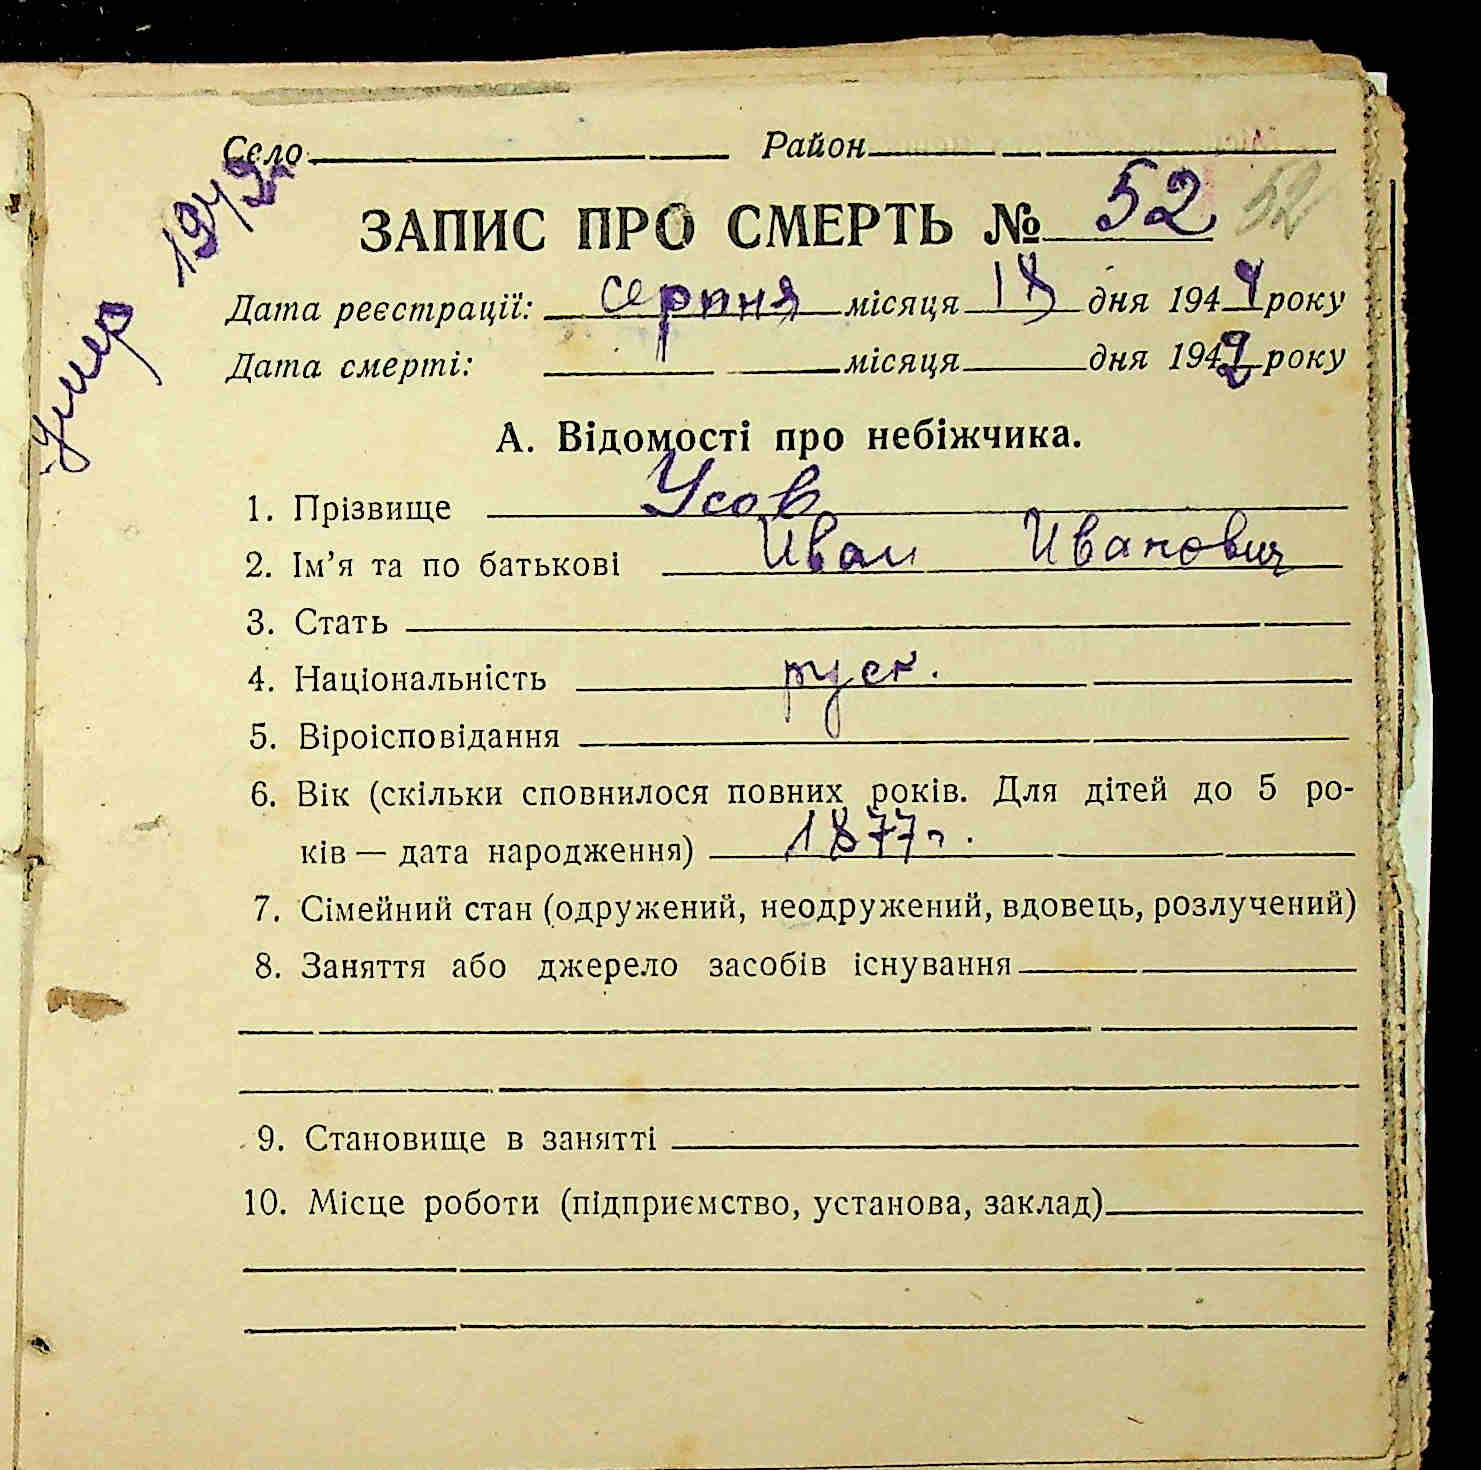 Село Район
умер 1942г
ЗАПИС ПРО СМЕРТЬ № 52 52
Дата реєстрації: серпня місяця 18 дня 194 року
Дата смерті: місяця дня 1942 року
А. Відомості про небіжчика.
1. Прізвище Усов
2. Ім'я та по батькові Иван Иванович
3. Стать
4. Національність руск.
5. Віроісповідання
6. Вік (скільки сповнилося повних років. Для дітей до 5 ро-
ків — дата народження) 1877г.
7. Сімейний стан (одружений, неодружений, вдовець, розлучений)
8. Заняття або джерело засобів існування
9. Становище в занятті
10. Місце роботи (підприємство, установа, заклад)